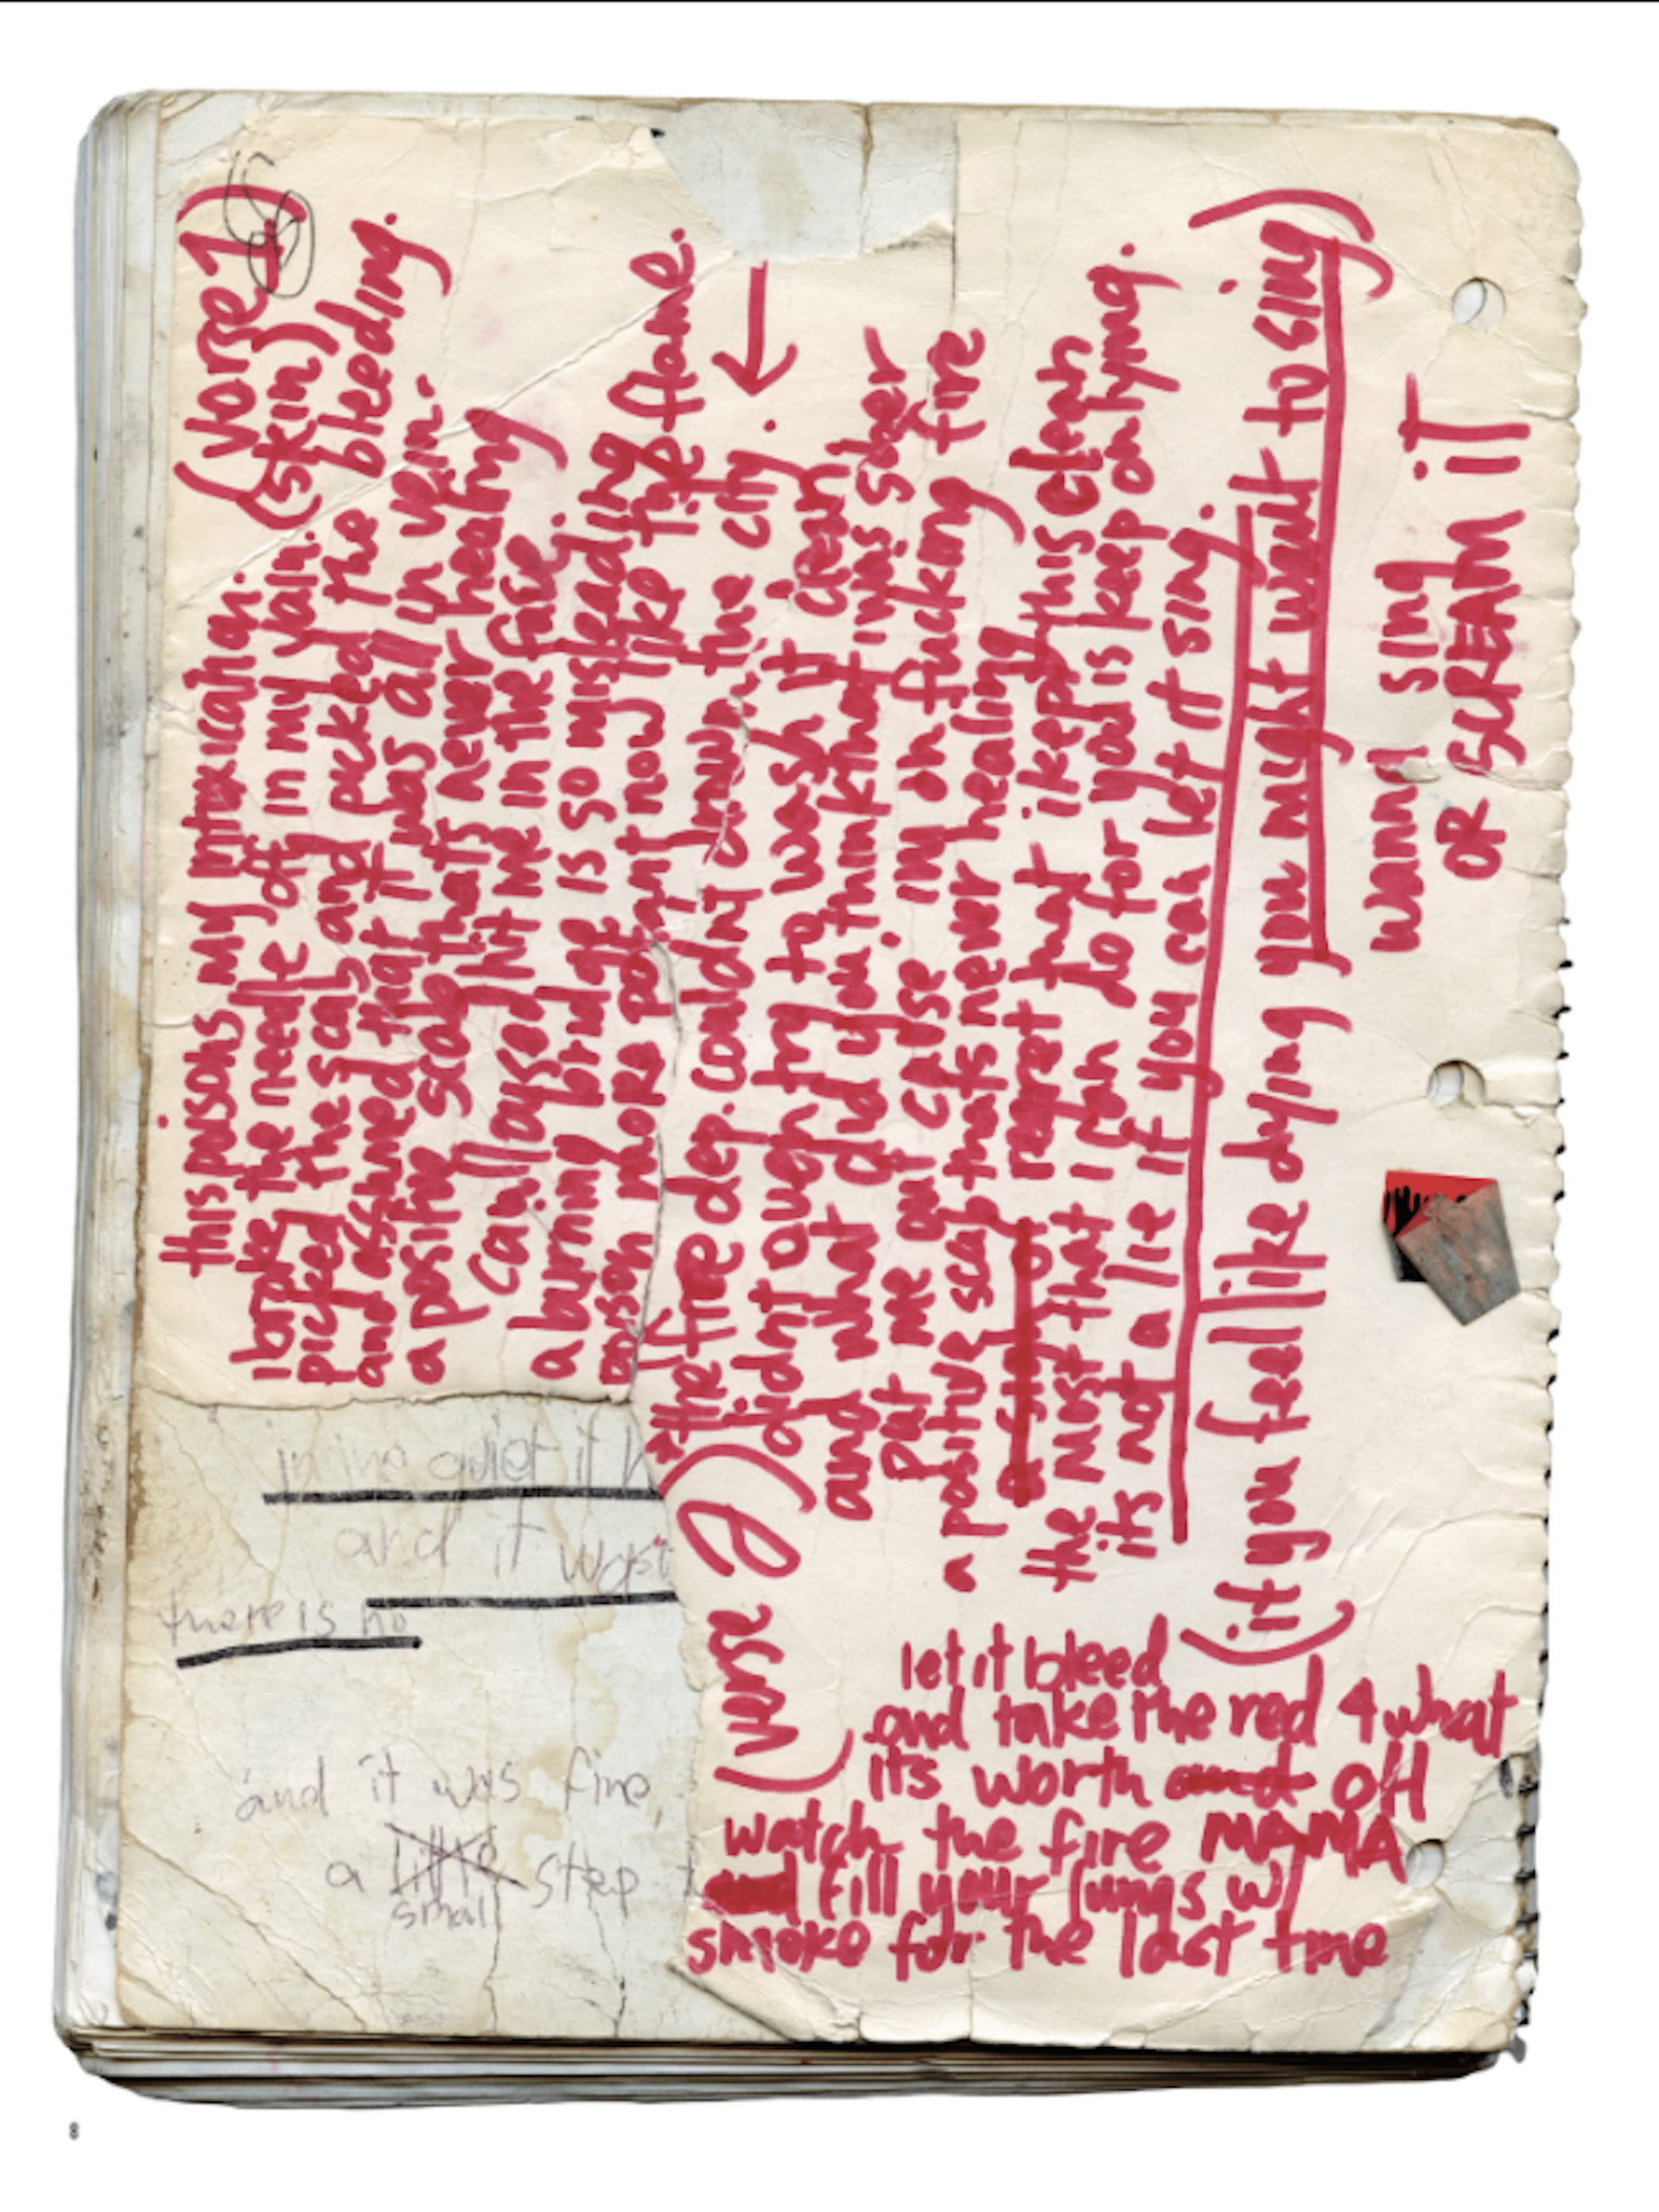 (Verse 1)
(skin)
this poisons my intoxication.
i broke the needle off in my vein.
picked the scab and picked the bleeding.
and assumed that it was all in vein.
a positive scab thats never healing
hit me in the face
a burning bridge is so misleading
poison more potent now like this flame.
(verse 2)
"the fire dep. couldnt drown the city.
didnt even try to wash it clean
and what did you think that i was sober
put me out cause im on fucking fire
a positive scab thats never healing
regret that i kept this clean
the most that i can do for you is keep on lying.
its not a lie if you can let it sing.
(if you feel like dying you might want to sing)
wanna sing
OR SCREAM iT
let it bleed
and take the red 4 what
its worth and OH
watch the fire MAMA
fill your lungs w/
smoke for the last time
in the quiet it
and it
there is no
and it was fine
a little step
small
8